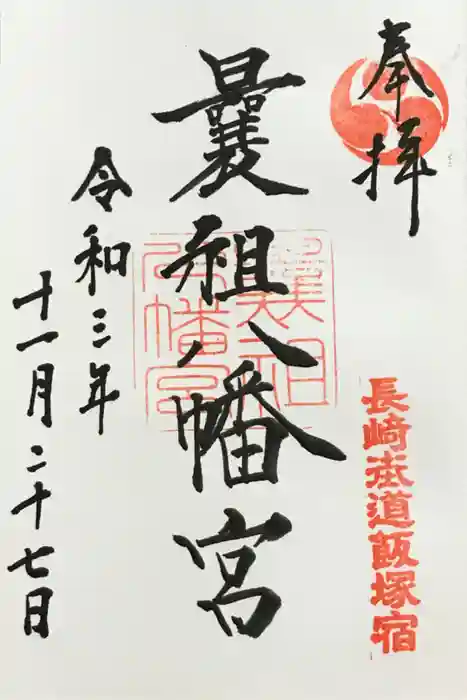 奉拝
長崎街道飯塚宿
曩祖八幡宮
令和三年
十一月二十七日